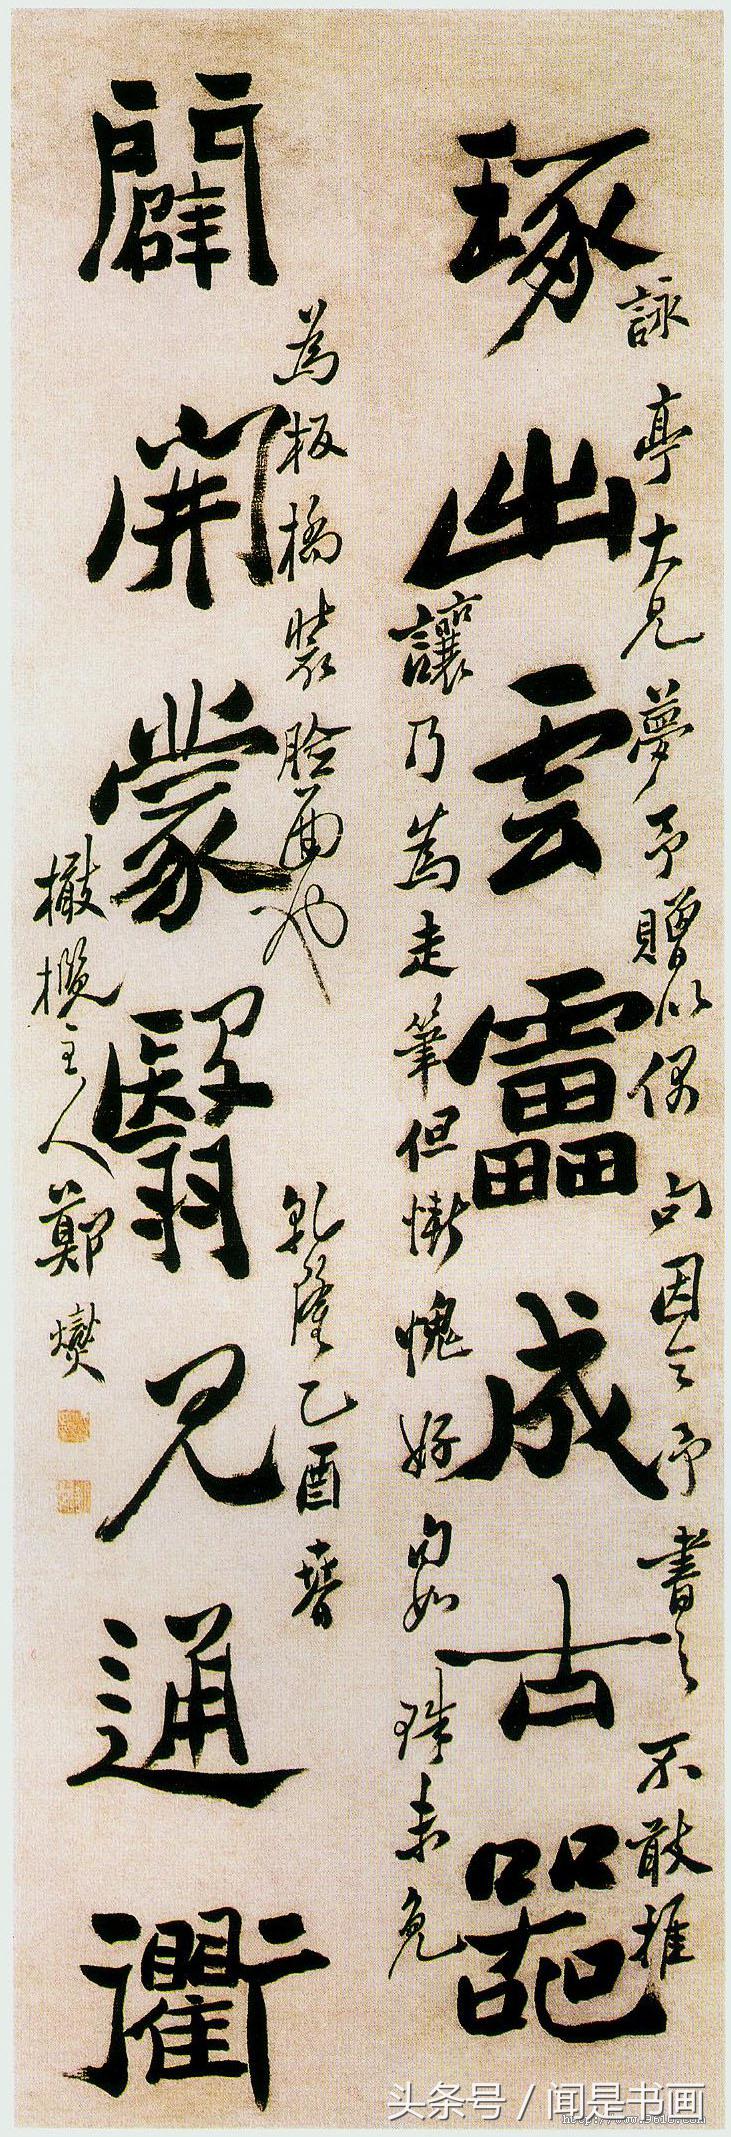 詠亭大兄夢予贈以偶句因令予書之不敢推
琢出雲靁成古器
讓乃為走筆但慚愧好句如珠未免
為板橋裝臉面也 乾隆乙酉春
闢開蒙翳見通衢
橄欖主人鄭燮
头条号 / 闻是书画